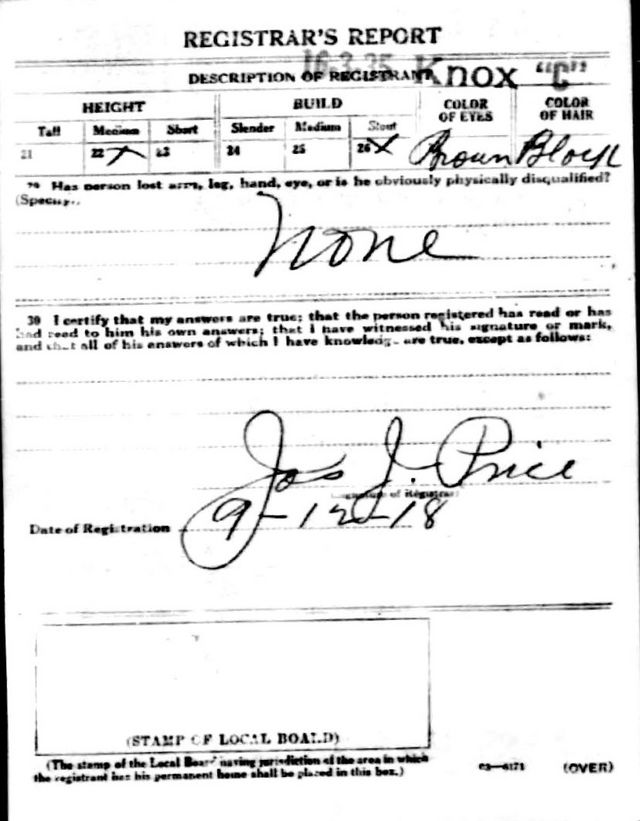 REGISTRAR'S REPORT
16-3-25 Knox "C"
DESCRIPTION OF REGISTRANT
HEIGHT BUILD COLOR OF EYES COLOR OF HAIR
Tall Medium Short Slender Medium Stout
21 22 X 23 24 25 26 X Brown Black
29 Has person lost arm, leg, hand, eye, or is he obviously physically disqualified?
(Specify.)
None
30 I certify that my answers are true; that the person registered has read or has
had read to him his own answers; that I have witnessed his signature or mark,
and that all of his answers of which I have knowledge are true, except as follows:
Jos J. Price
(Signature of Registrar)
Date of Registration 9-12-18
(STAMP OF LOCAL BOARD)
(The stamp of the Local Board having jurisdiction of the area in which
the registrant has his permanent home shall be placed in this box.)
03—6171 (OVER)